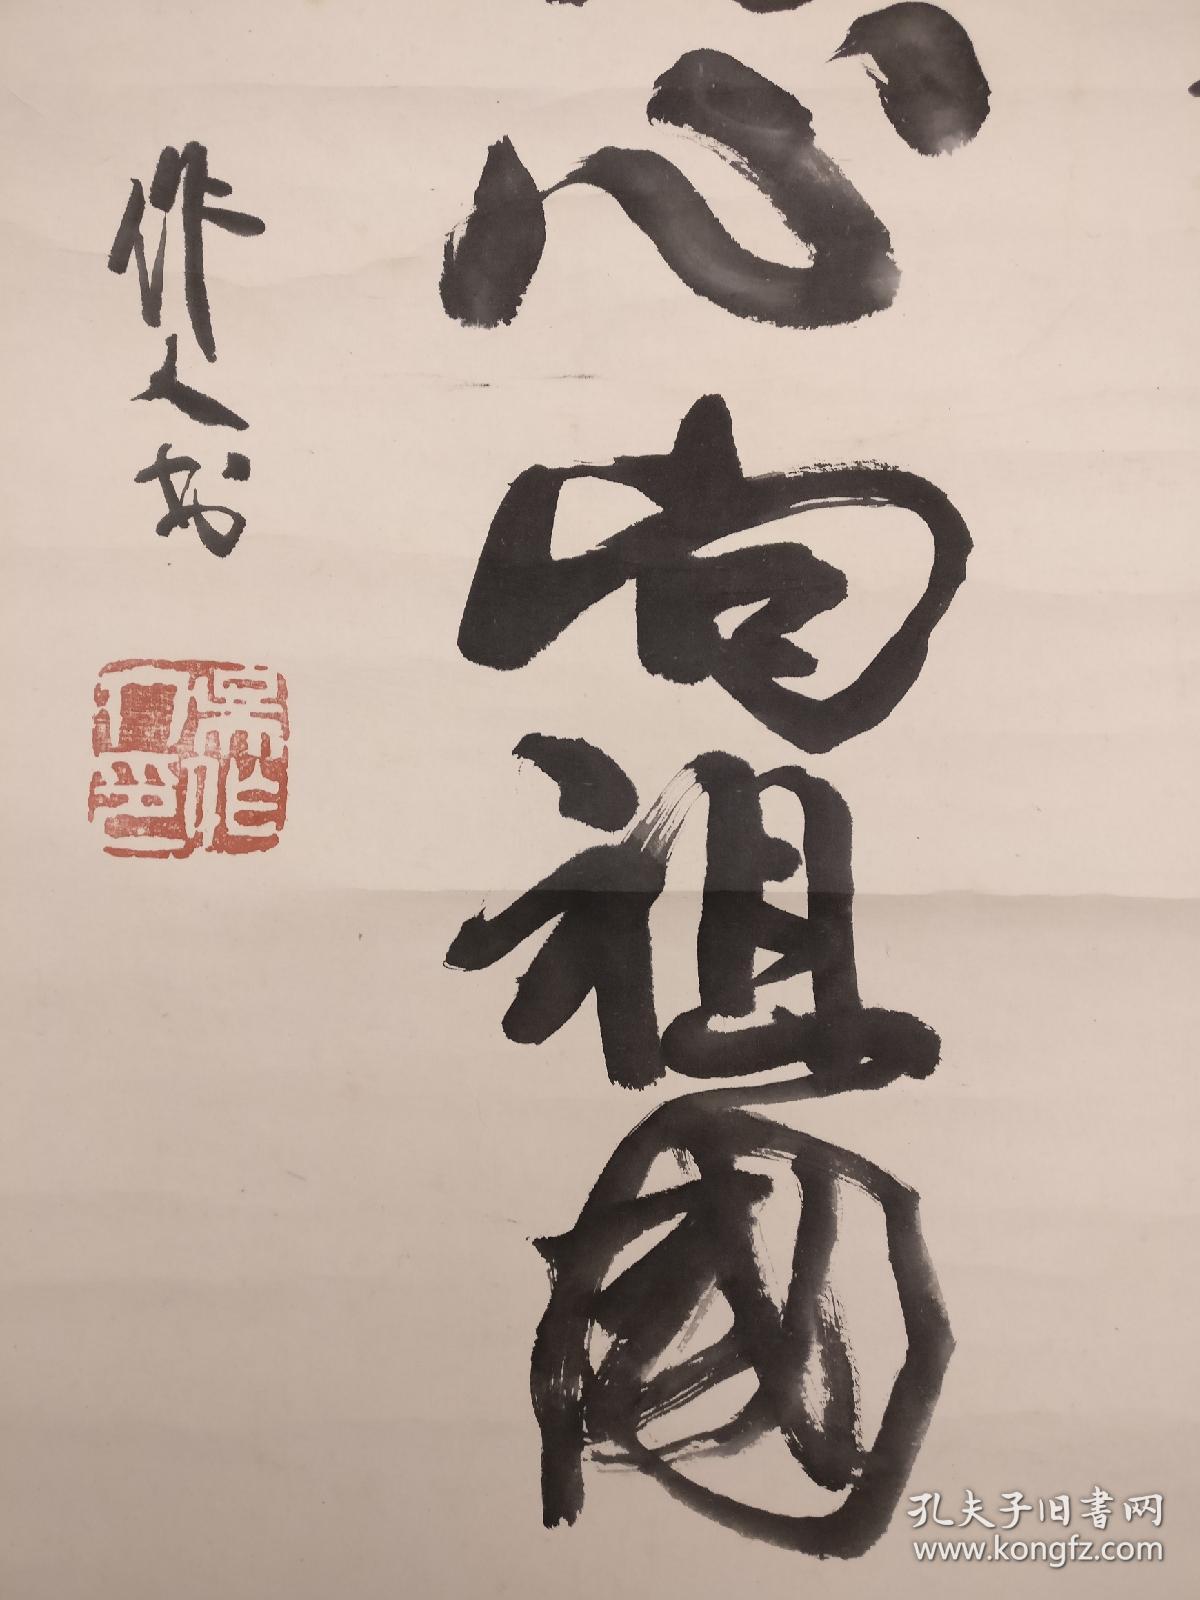 心向祖国
作人书
吴作人印
孔夫子旧书网
www.kongfz.com